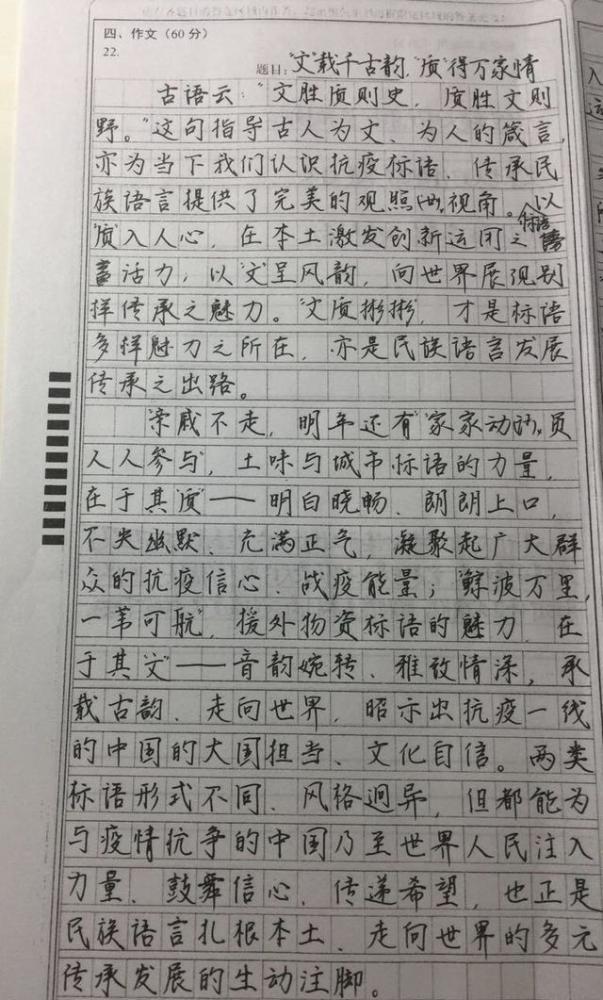 四、作文(60分)
22.
题目:“文”载千古韵,“质”得万家情
古语云:“文胜质则史,质胜文则
野。”这句指导古人为文、为人的箴言,
亦为当下我们认识抗疫标语、传承民
族语言提供了完美的观照视角。以
“质”入人心,在本土激发创新运用之标语
活力;以“文”呈风韵,向世界展现别
样传承之魅力。“文质彬彬”,才是标语
多样魅力之所在,亦是民族语言发展
传承之出路。
“亲戚不走,明年还有”“家家动员,
人人参与”,土味与城市标语的力量,
在于其“质”——明白晓畅、朗朗上口,
不失幽默、充满正气,凝聚起广大群
众的抗疫信心、战疫能量;“鲸波万里,
一苇可航”,援外物资标语的魅力,在
于其“文”——音韵婉转、雅致情深,承
载古韵、走向世界,昭示出抗疫一线
的中国的大国担当、文化自信。两类
标语形式不同、风格迥异,但都能为
与疫情抗争的中国乃至世界人民注入
力量、鼓舞信心、传递希望,也正是
民族语言扎根本土、走向世界的多元
传承发展的生动注脚。